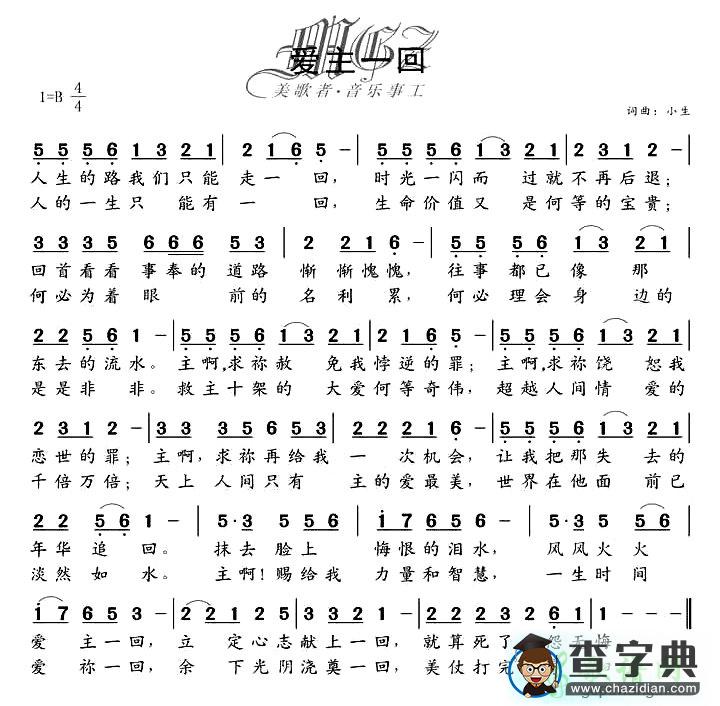 MGZ
爱主一回
美歌者·音乐事工
1=B 4/4
词曲：小生
5 5 5 6 1 3 2 1 | 2 1 6 5 - | 5 5 5 6 1 3 2 1 | 2 3 1 2 - |
人生的路我们只能 走一 回， 时光一闪而 过就不再后退；
人的一生只 能有 一 回， 生命价值又 是何等的宝贵；
3 3 3 5 6 6 6 5 3 | 2 2 1 6 - | 5 5 5 6 1 3 2 1 |
回首看看 事奉的 道路 惭 惭愧愧， 往事 都已 像 那
何必为着 眼 前的 名利 累， 何必 理会 身 边的
2 2 5 6 1 - | 5 5 5 6 1 3 2 1 | 2 2 1 6 2 - | 5 5 5 6 1 3 2 1 |
东去的流水。 主啊,求祢赦 免我悖逆的罪； 主啊,求祢饶 恕我
是是非 非。 救主十架的 大爱何等奇伟， 超越人间情 爱的
2 3 1 2 - | 3 3 3 5 6 5 5 3 | 2 2 1 6 - | 5 5 5 6 1 3 2 1 |
恋世的罪； 主啊, 求祢再给我 一 次机会， 让我把那失 去的
千倍万倍； 天上 人间只有 主的爱最美， 世界在他面 前已
2 2 5 6 1 - | 5·3 5·3 | 1 7 6 5 6 - | 5·3 5·3 |
年华 追 回。 抹去 脸上 悔恨的泪水， 风风火火
淡然 如 水。 主啊！赐给我 力量和智慧， 一生时间
1 7 6 5 5 - | 2 2 1 2 5 3 | 2 1 2 2 - | 2 2 1 6
爱 主一回， 立 定心志献上一回， 就算死了
爱 祢一回， 余 下光阴浇奠一回， 美仗打完
查字典
www.chazidian.com